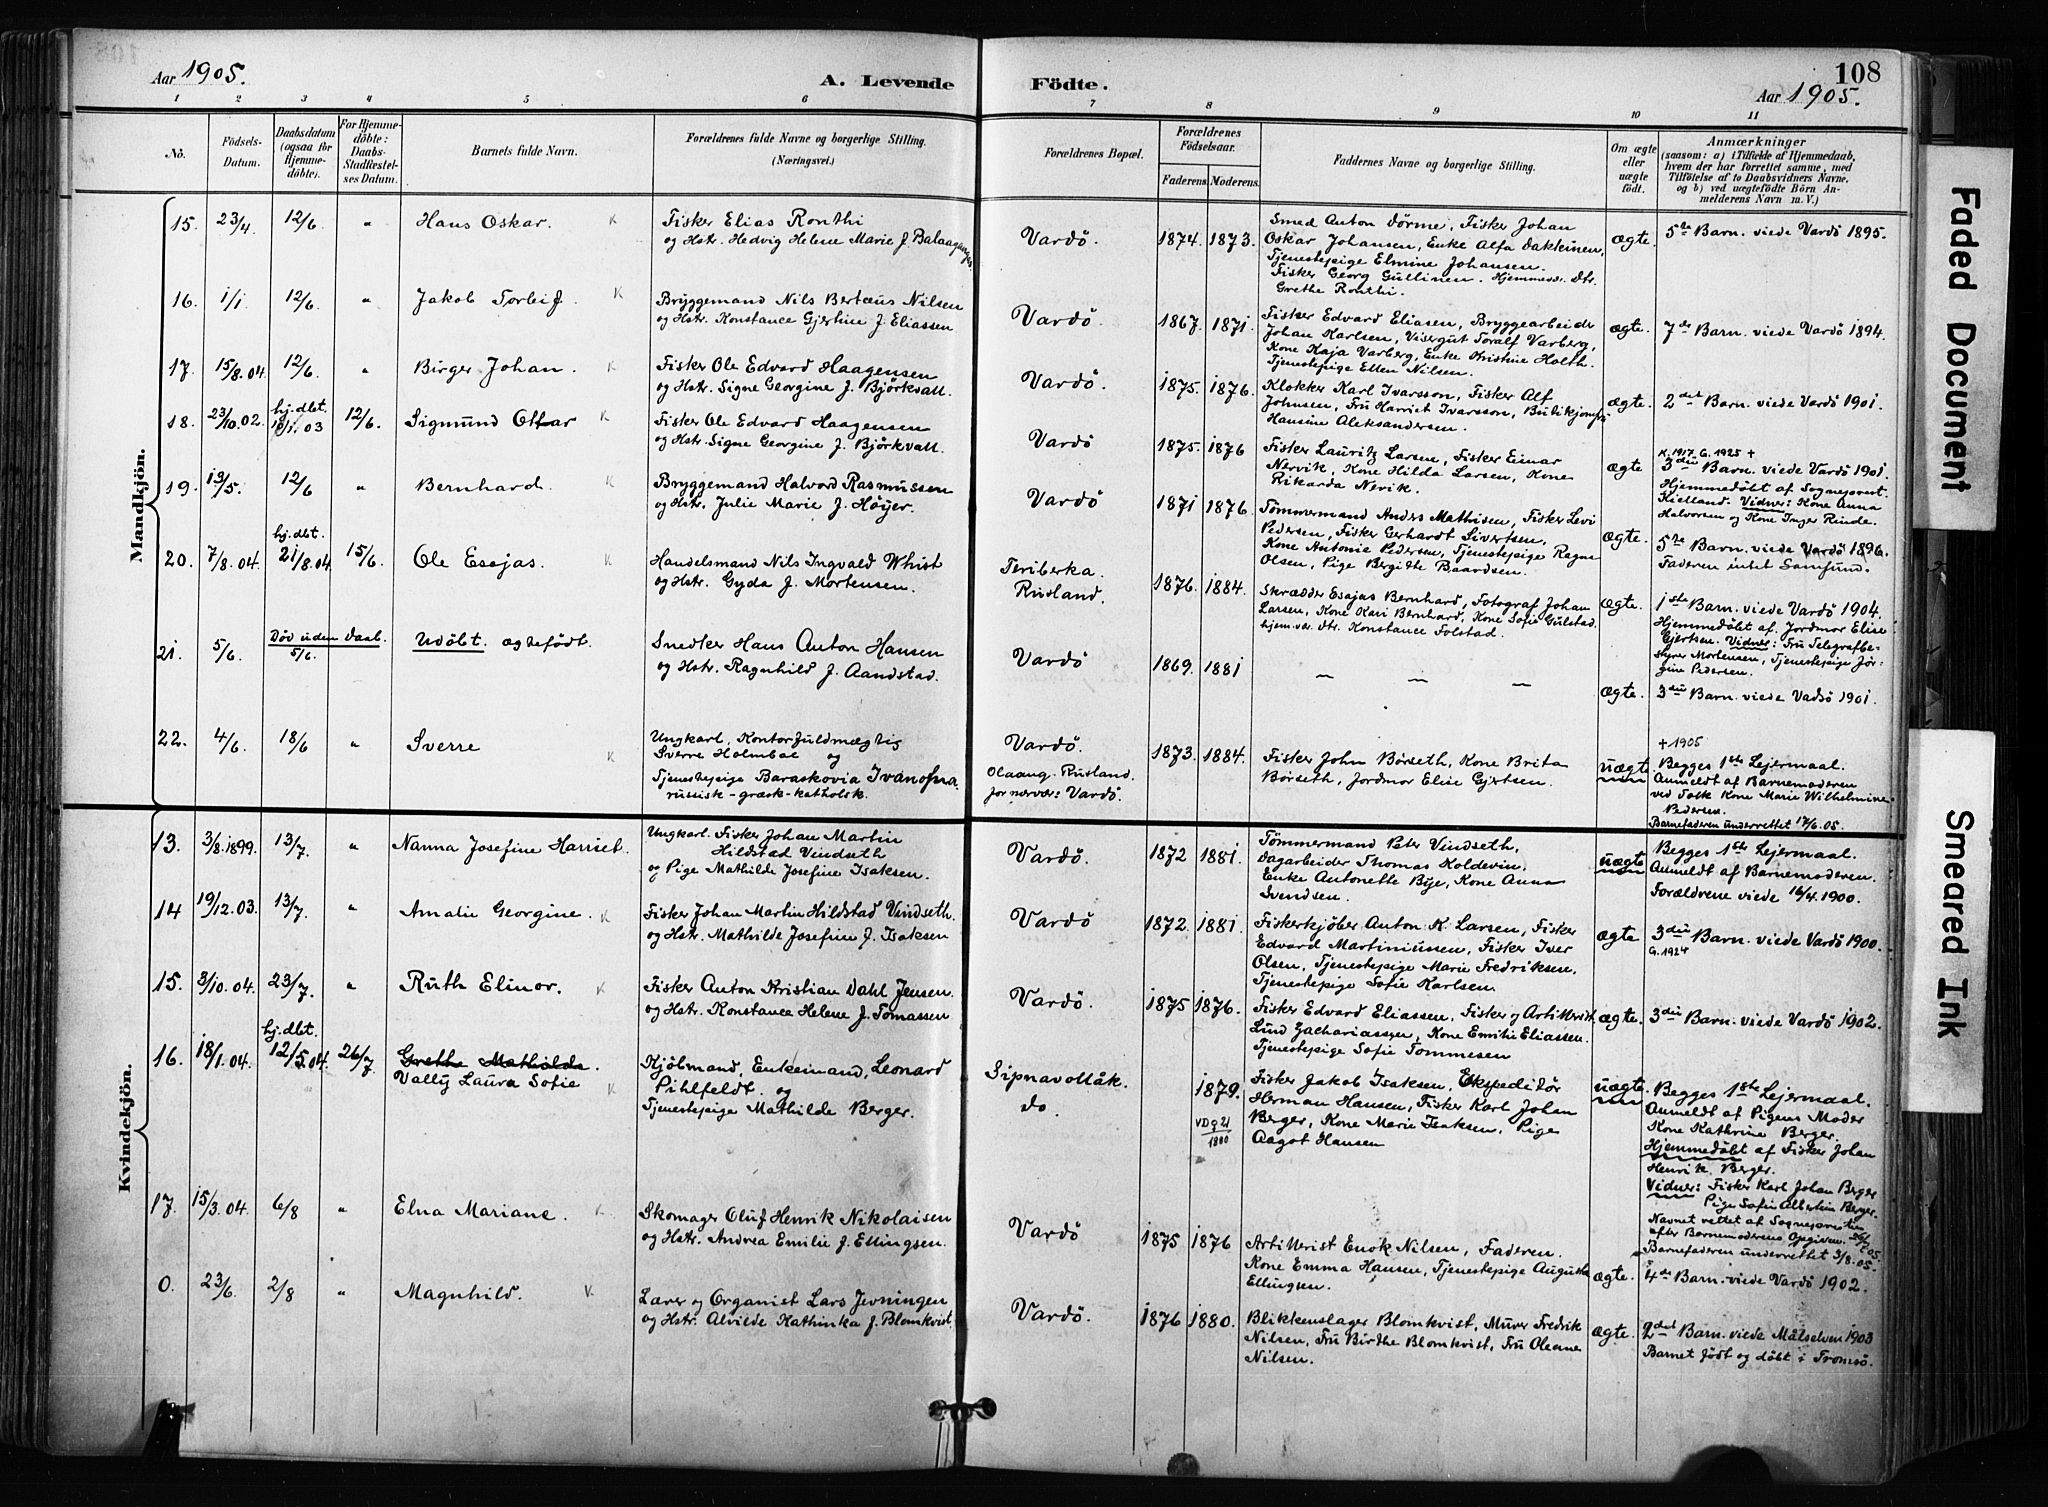 Aar 1905.
A. Levende
Födte.
108
Aar 1905.
1 2 3 4 5 6 7 8 9 10 11
No.
Födsels-
Datum.
Daabsdatum
(ogsaa for
Hjemme-
döbte).
For Hjemme-
döbte:
Daabs-
Stadfæstel-
ses Datum.
Barnets fulde Navn.
Forældrenes fulde Navne og borgerlige Stilling.
(Næringsvei.)
Forældrenes Bopæl.
Forældrenes
Födselsaar.
Faderens. Moderens.
Faddernes Navne og borgerlige Stilling.
Om ægte
eller
uægte
födt.
Anmærkninger
(saasom: a) i Tilfælde af Hjemmedaab,
hvem der har forrettet samme, med
Tilföielse af to Daabsvidners Navne.
og b) ved uægtefödte Börn An-
melderens Navn m. V.)
Mandkjön.
15. 23/4 12/6 " Hans Oskar. K
Fisker Elias Ronthi
og Hstr. Hedvig Helene Marie f. Balaaganges.
Vardö. 1874. 1873.
Smed Anton Dörme, Fisker Johan
Oskar Johansen, Enke Alfa Dakkinen,
Tjenestepige Elmine Johansen.
Fisker Georg Gullinen. Hjemmev. Dtr.
Grethe Ronthi.
ægte. 5te Barn. viede Vardö 1895.
16. 1/1 12/6. " Jakob Torleif. K
Bryggemand Nils Bertæus Nilsen
og Hstr. Konstance Gjertine f. Eliassen
Vardö. 1867. 1871.
Fisker Edvard Eliasen, Bryggearbeider
Johan Karlsen, Visergut Toralf Varberg,
Kone Kaja Varberg, Enke Kristine Holth.
Tjenestepige Ellen Nilsen.
ægte. 7de Barn. viede Vardö 1894.
17. 15/8.04. 12/6. " Birger Johan. K
Fisker Ole Edvard Haagensen
og Hstr. Signe Georgine f. Björkvatt.
Vardö. 1875. 1876.
Klokker Karl Ivarsson, Fisker Alf
Johnsen, Fru Harriet Ivarsson, Butikjomfru
Hansine Aleksandersen.
ægte. 2det Barn. viede Vardö 1901.
18. 23/10.02. hj.dbt. 18/1.03 12/6. Sigmund Ottar K
Fisker Ole Edvard Haagensen
og Hstr. Signe Georgine f. Björkvatt.
Vardö 1875. 1876
Fisker Lauritz Larsen, Fisker Einar
Nervik, Kone Hilda Larsen, Kone
Rikarda Nervik.
ægte
K. 1917. G. 1925 +
3die Barn. viede Vardö 1901.
Hjemmedöbt af Sogneprest
Kielland. Vidner: Kone Anna
Halvorsen og Kone Inger Rinde.
19. 13/5. 12/6 " Bernhard. K
Bryggemand Halvord Rasmussen
og Hstr. Julie Marie f. Höyer.
Vardö 1871 1876.
Tömmermand Anders Mathisen, Fisker Levi
Pedersen, Fisker Gerhardt Sivertsen,
Kone Antonie Pedersen, Tjenestepige Ragna
Olsen, Pige Bergithe Baardsen.
ægte. 5te Barn. viede Vardö 1896.
Faderen intet Samfund.
20. 7/8.04. hj.dbt. 21/8.04. 15/6. Ole Esajas. K
Handelsmand Nils Ingvald Whist
og Hstr. Gyda f. Mortensen.
Teriberka.
Rusland.
1876. 1884.
Skrædder Esajas Bernhard, Fotograf Johan
Larsen, Kone Kari Bernhard, Kone Sofie Gulstad.
hjem.ver. dtr. Konstance Folstad.
ægte. 1ste Barn. viede Vardö 1904.
Hjemmedöbt af Jordmor Elise
Gjertsen. Vidner: Fru Telegrafbe-
styrer Mortensen, Tjenestepige Jör-
gine Pedersen.
21. 5/6. Död uden Daab 5/6. Udöbt. ægtefödt.
Snedker Hans Anton Hansen
og Hstr. Ragnhild f. Aandstad.
Vardö 1869. 1881
ægte. 3die Barn. viede Vadsö 1901.
22. 4/6. 18/6 " Sverre K
Ungkarl, Kontorfuldmægtig
Sverre Holmboe og
Tjenestepige Baraskovia Ivanofna.
russisk-græsk-katholsk.
Vardö.
Olaang. Rusland.
for nærvær: Vardö.
1873. 1884.
Fisker John Börseth, Kone Brita
Börseth, Jordmor Elise Gjertsen.
uægte
+ 1905
Begges 1ste Lejermaal.
Anmeldt af Barnemoderen
ved Tolk Kone Marie Wilhelmine
Pedersen.
Barnefaderen underrettet 17/6.05.
Kvindekjön.
13. 3/8.1899. 13/7. " Nanna Josefine Harriet.
Ungkarl. Fisker Johan Martin
Hildstad Vindseth
og Pige Mathilde Josefine Isaksen.
Vardö. 1872 1881.
Tömmermand Peter Vindseth,
Dagarbeider Thomas Holdevin,
Enke Antonette Bye, Kone Anna
Svendsen.
uægte
Begges 1ste Lejermaal.
Anmeldt af Barnemoderen.
Forældrene viede 16/4.1900.
14 19/12.03. 13/7. " Amalie Georgine. K
Fisker Johan Martin Hildstad Vindseth.
og Hstr. Mathilde Josefine f. Isaksen
Vardö 1872. 1881.
Fiskerkjöber Anton K. Larsen, Fisker
Edvard Martiniussen, Fisker Iver
Olsen, Tjenestepige Marie Fredriksen,
Tjenestepige Sofie Karlsen.
ægte 3die Barn. viede Vardö 1900.
G. 1924
15. 3/10.04. 23/7. " Ruth Elinor. K
Fisker Anton Kristian Dahl Jensen.
og Hstr. Konstance Helene f. Tomassen
Vardö. 1875 1876.
Fisker Edvard Eliassen, Fisker og Artillerist
Lund Zachariassen, Kone Emilie Eliassen.
Tjenestepige Sofie Tommesen
ægte. 3die Barn. viede Vardö 1902.
16. 18/1.04. hj.dbt. 12/5.04. 26/7. Grethe Mathilde.
Vally Laura Sofie K
Kjöbmand, Enkemand, Leonard
Pihlfeldt. og
Tjenestepige Mathilde Berger.
Sipnavollåk.
do.
1879.
1880
Fisker Jakob Isaksen, Ekspeditör
Herman Hansen, Fisker Karl Johan
Berger, Kone Marie Isaksen, Pige
Aagot Hansen
uægte.
Begges 1ste Lejermaal.
Anmeldt af Pigens Moder
Kone Kathrine Berger.
Hjemmedöbt af Fisker Johan
Henrik Berger.
Vidner: Fisker Karl Johan Berger
Pige Sofie Albertin Berger.
Navnet rettet af Sognepresten
efter Barnemoderens Opgiven. 26/7 05
Barnefaderen underrettet 3/8.05.
17. 15/3.04. 6/8 " Elna Mariane. K
Skomager Oluf Henrik Nikolaisen
og Hstr. Andrea Emilie f. Ellingsen.
Vardö 1875 1876
Artillerist Enok Nilsen, Faderen.
Kone Emma Hansen, Tjenestepige Augusta
Ellingsen.
ægte. 4de Barn. viede Vardö 1902.
0. 23/6. 2/8 " Magnhild. K
Lærer og Organist Lars Jevningen
og Hstr. Alvilde Kathinka f. Blomkvist.
Vardö. 1876 1880.
Blikkenslager Blomkvist, Murer Fredrik
Nilsen, Fru Birthe Blomkvist, Fru Oleane
Nilsen.
ægte. 2det Barn. viede Målselven 1903
Barnet födt og döbt i Tromsö.
Faded Document
Smeared Ink